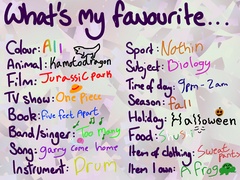 What's my favourite...
Colour: All
Animal: Komotodragon
Film: Jurassic park
TV show: One Piece
Book: Five feet Apart
Band/singer: Too many
Song: garry come home
Instrument: Drum
Sport: Nothin
Subject: Biology
Time of day: 9pm-2am
Season: Fall
Holiday: Halloween
Food: Sushi
Item of clothing: Sweat pants
Item I own: A Frog